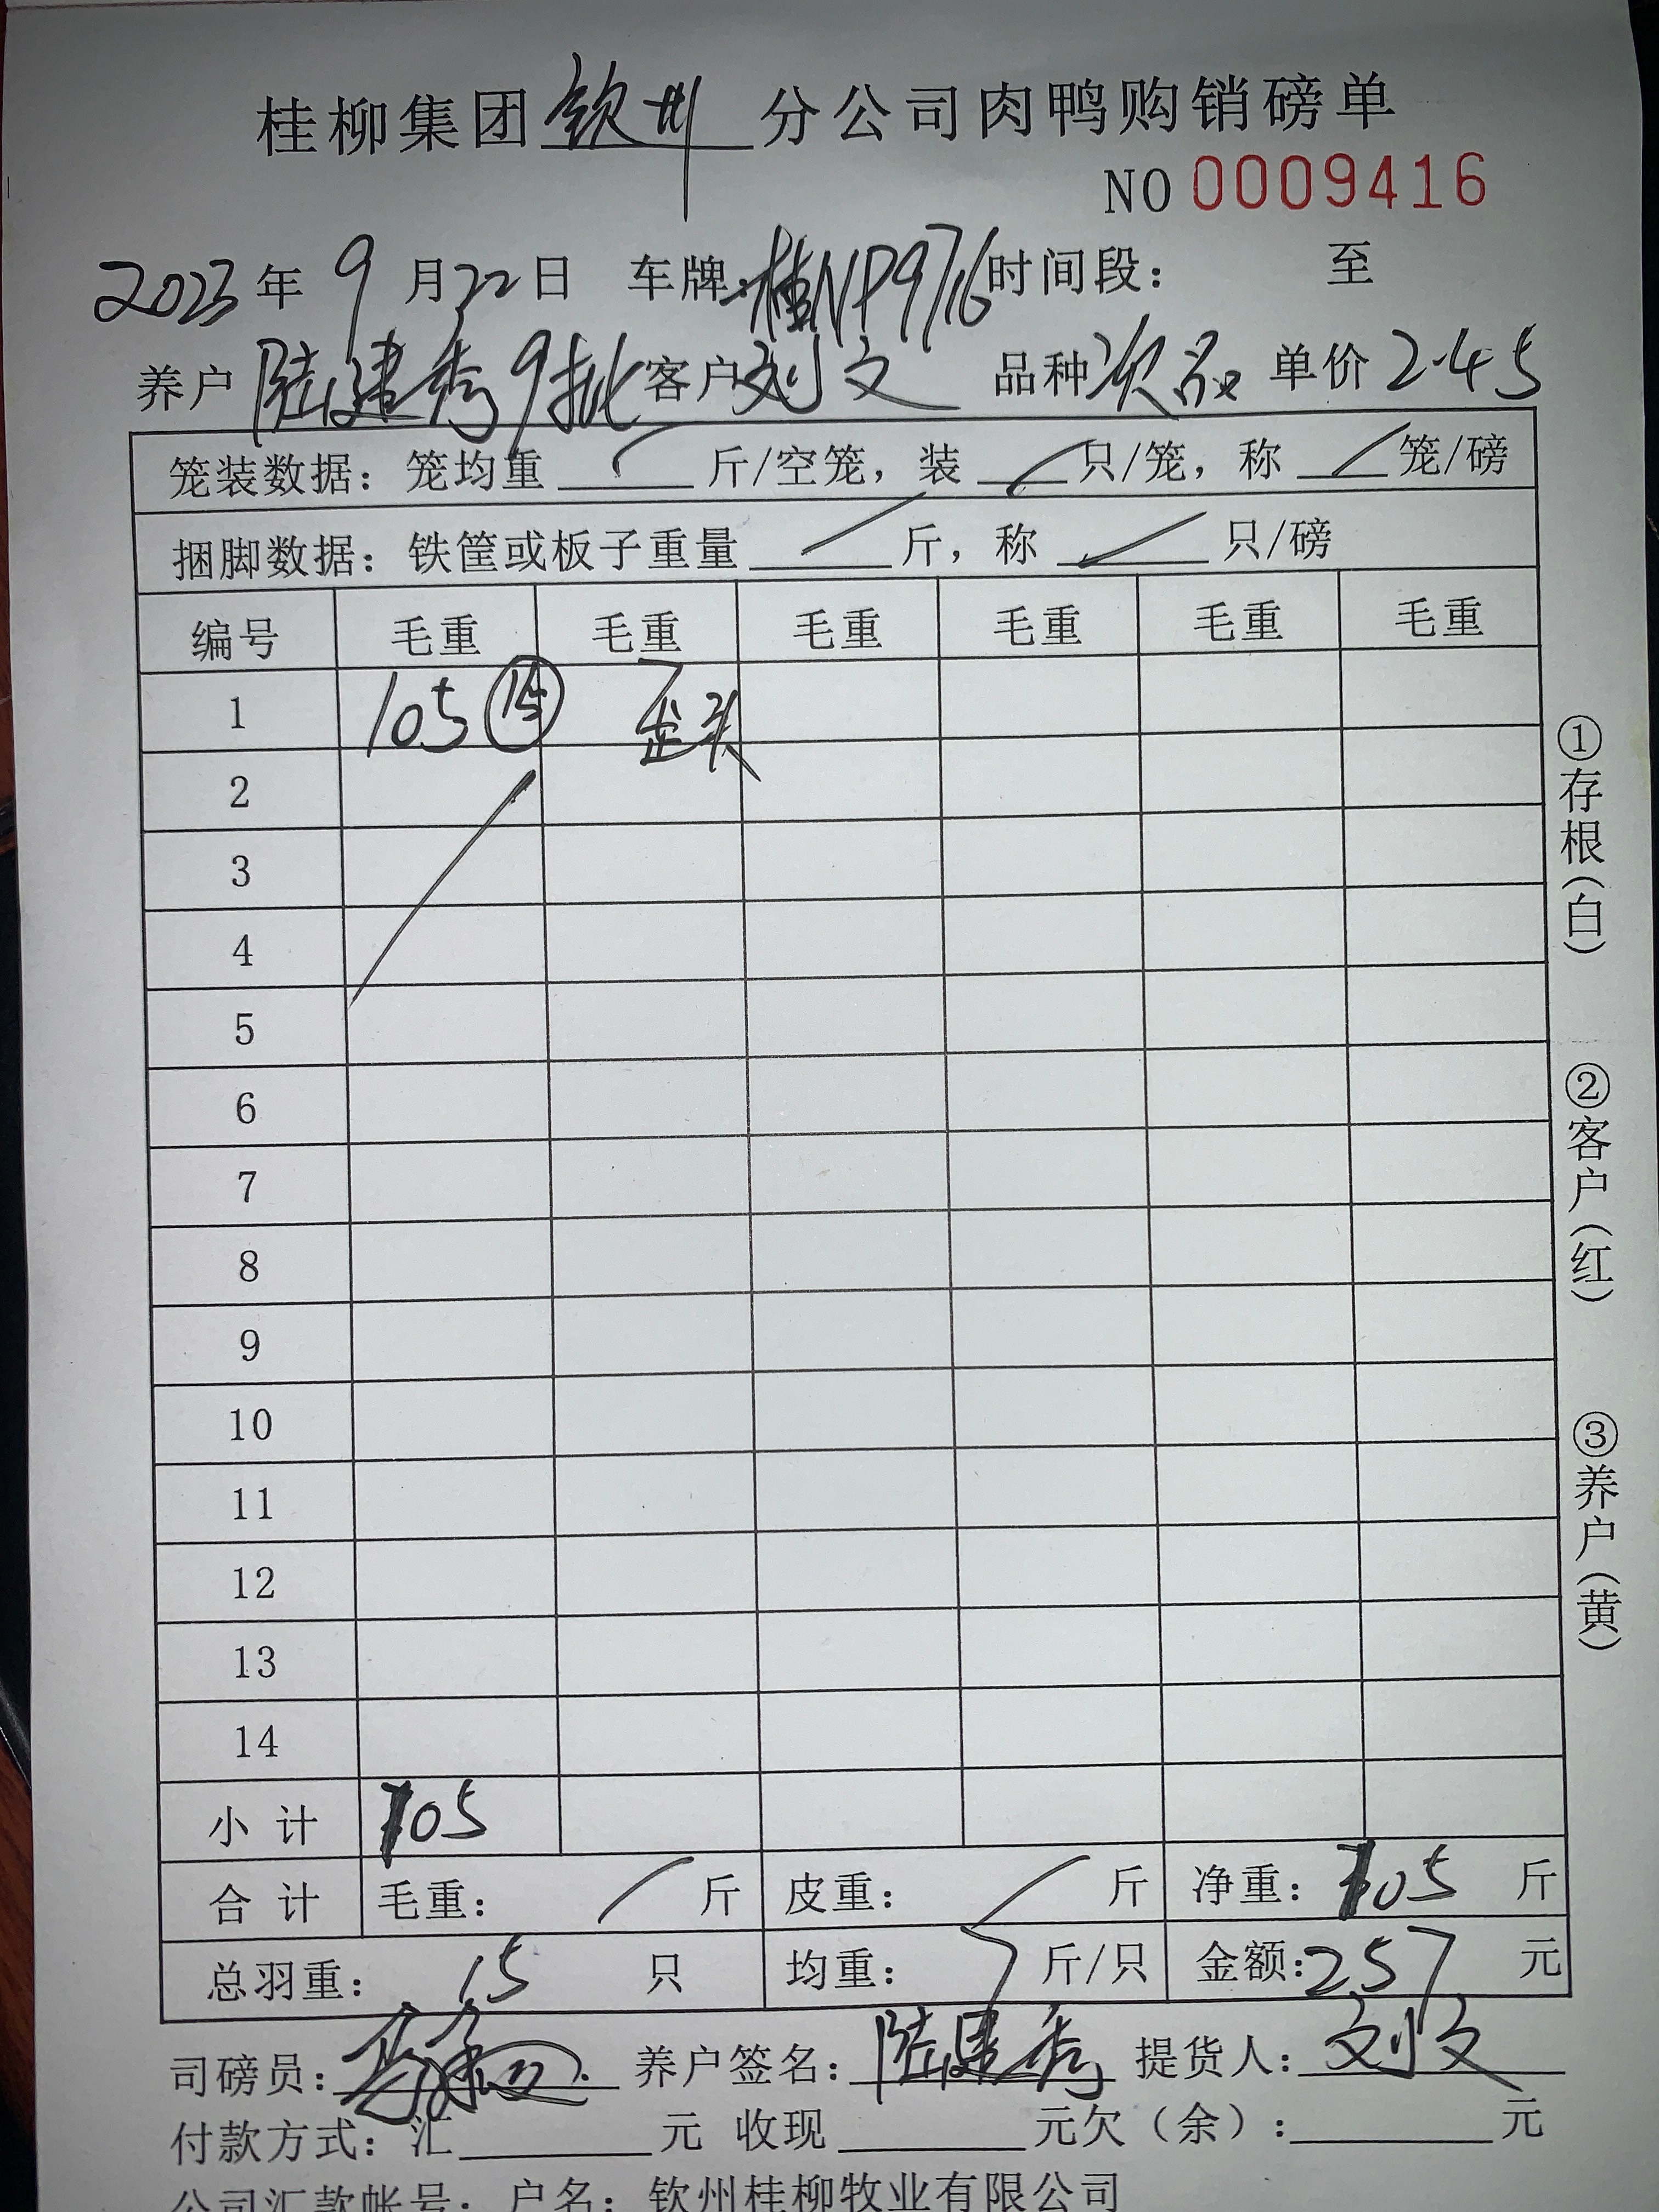 桂柳集团钦州分公司肉鸭购销磅单
NO 0009416
2023年9月22日 车牌:桂NP9716时间段: 至
养户 陆建秀9批 客户刘文 品种次品 单价2.45
笼装数据: 笼均重 / 斤/空笼, 装 / 只/笼, 称 / 笼/磅
捆脚数据: 铁筐或板子重量 / 斤, 称 / 只/磅
编号 毛重 毛重 毛重 毛重 毛重 毛重
1 105 ⑮ 歪头
2
3
4
5
6
7
8
9
10
11
12
13
14
小计 105
合计 毛重: / 斤 皮重: / 斤 净重: 105 斤
总羽重: 15 只 均重: 7 斤/只 金额:257 元
司磅员: 养户签名: 陆建秀 提货人: 刘文
付款方式: 汇 元 收现 元欠(余): 元
公司汇款帐号: 户名: 钦州桂柳牧业有限公司
①存根(白)
②客户(红)
③养户(黄)